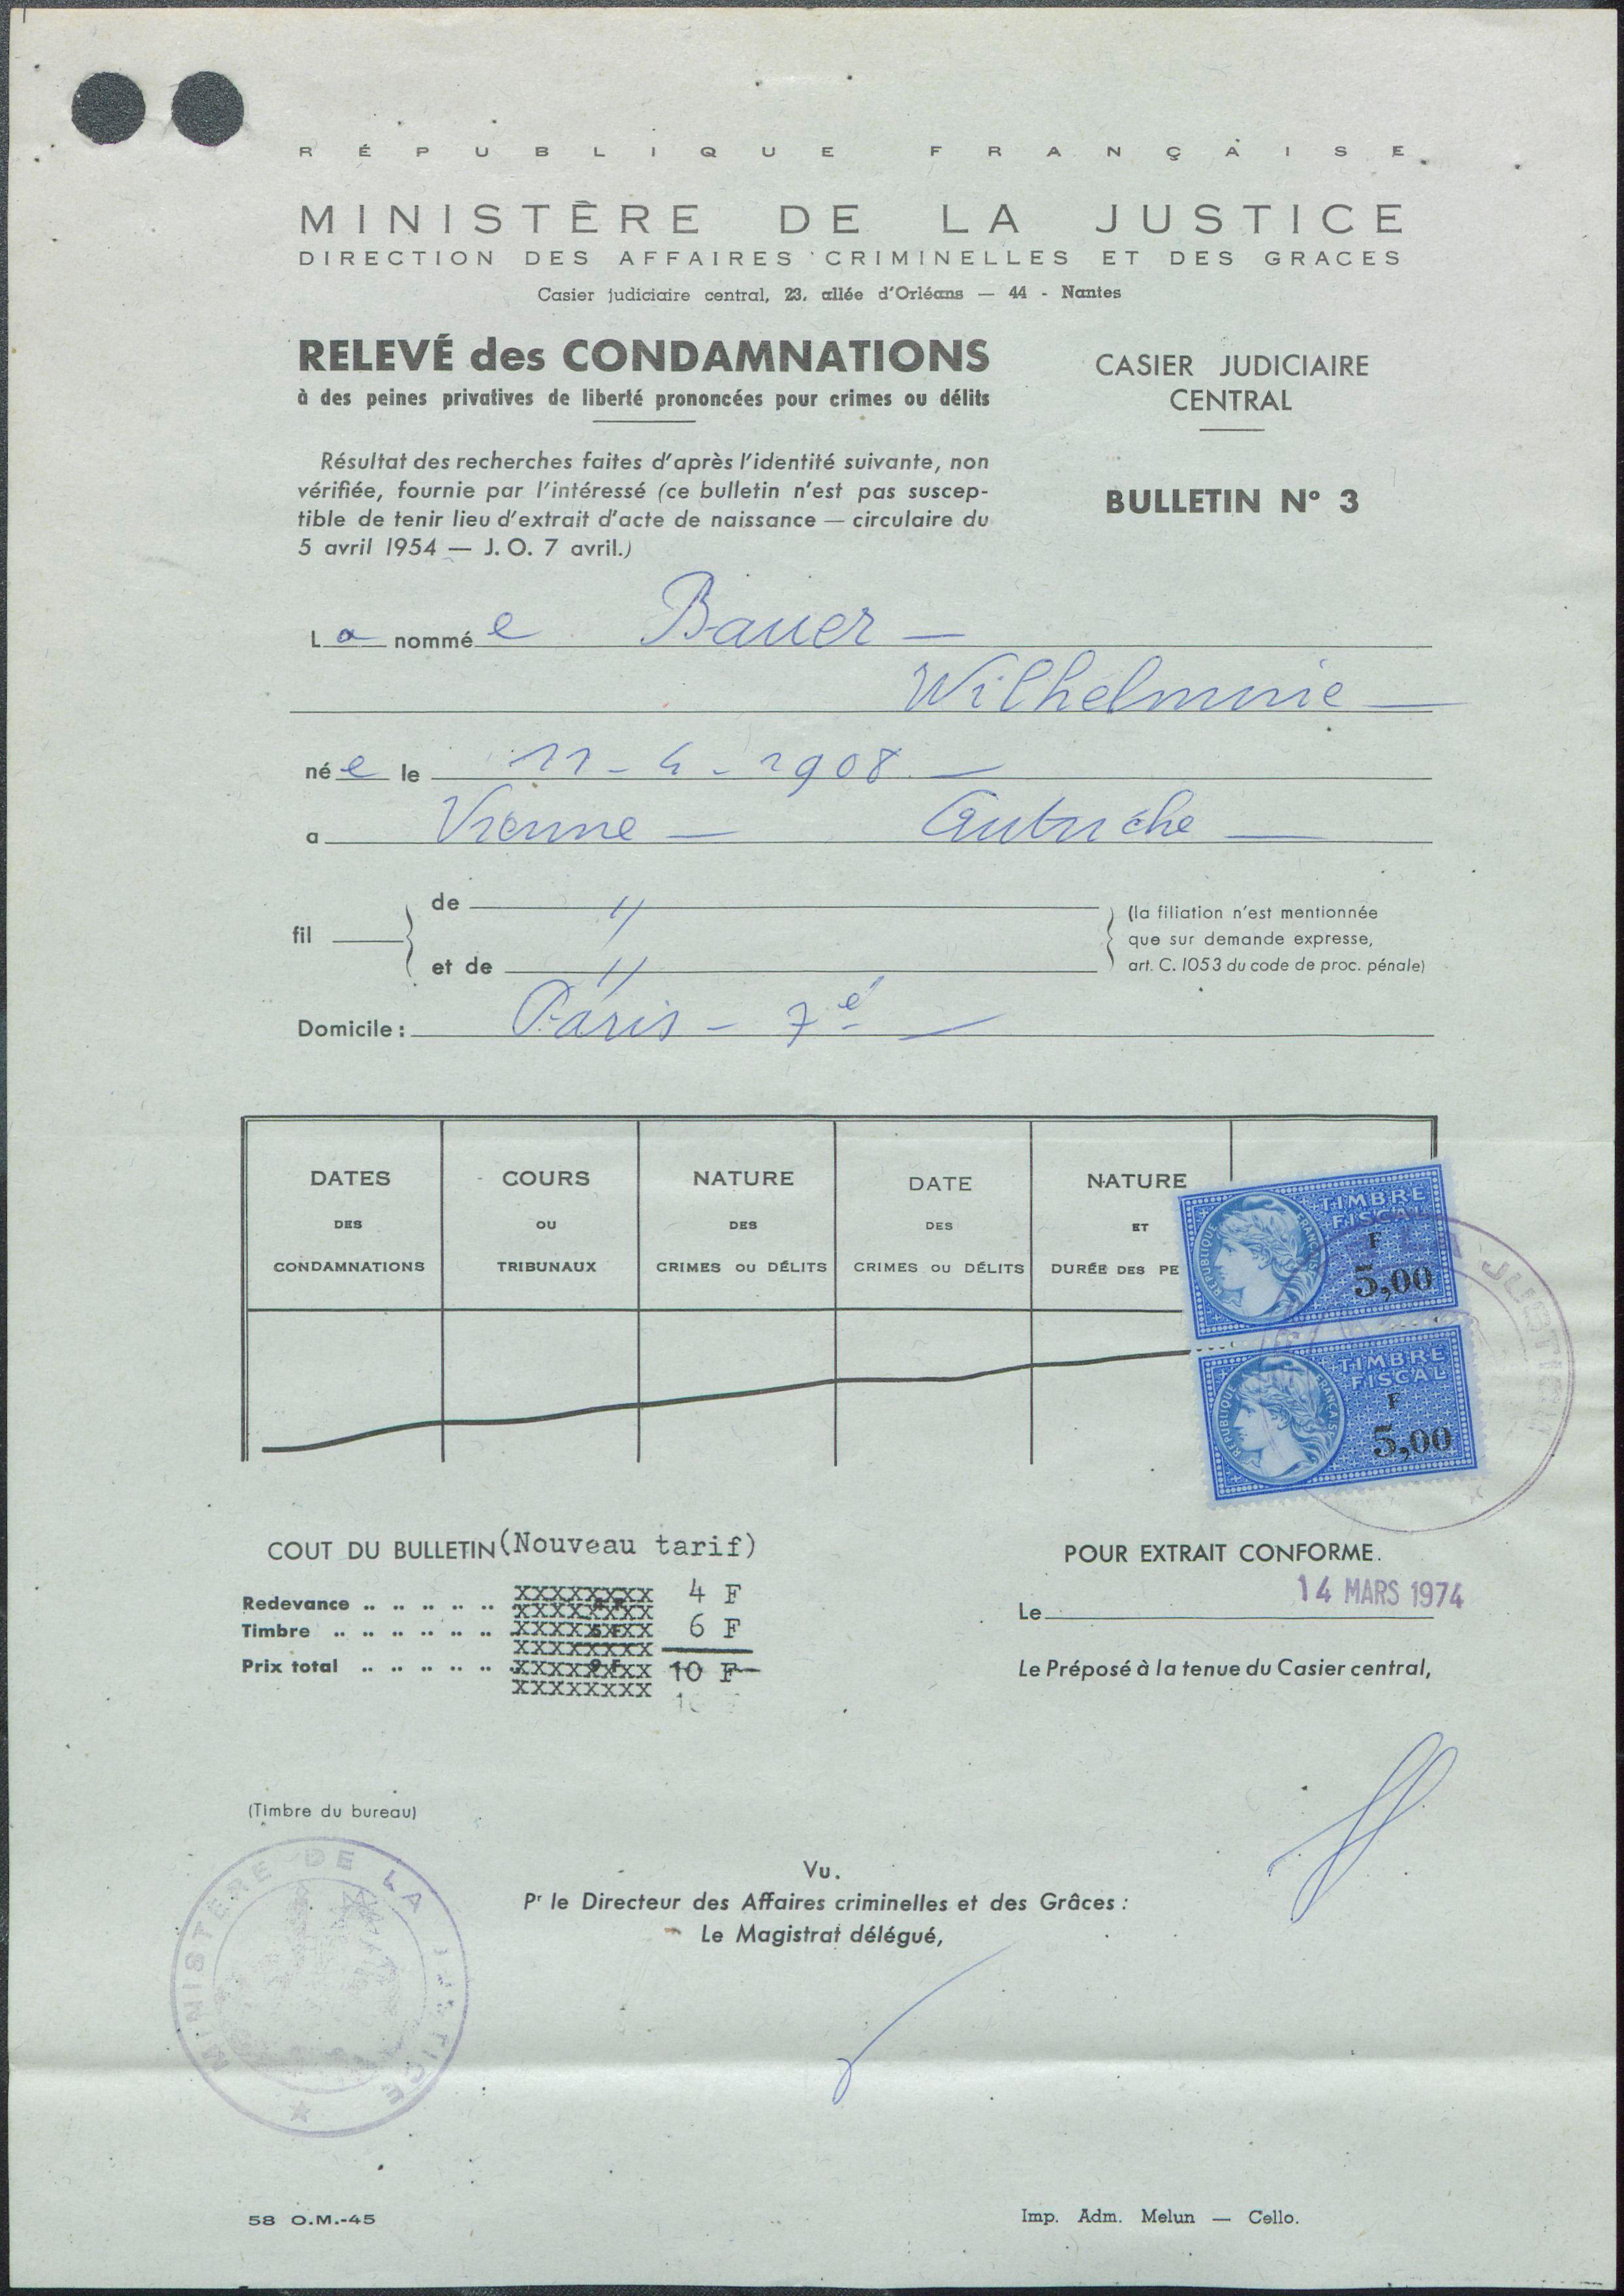 RÉPUBLIQUE FRANÇAISE
MINISTÈRE DE LA JUSTICE
DIRECTION DES AFFAIRES CRIMINELLES ET DES GRACES
Casier judiciaire central, 23, allée d'Orléans — 44 - Nantes
RELEVÉ des CONDAMNATIONS
à des peines privatives de liberté prononcées pour crimes ou délits
CASIER JUDICIAIRE
CENTRAL
Résultat des recherches faites d'après l'identité suivante, non
vérifiée, fournie par l'intéressé (ce bulletin n'est pas suscep-
tible de tenir lieu d'extrait d'acte de naissance — circulaire du
5 avril 1954 — J. O. 7 avril.)
BULLETIN N° 3
La nommée Bauer —
Wilhelmnie —
née le 11-4-1908 —
a Vienne — Autriche —
fil
de //
et de //
(la filiation n'est mentionnée
que sur demande expresse,
art. C. 1053 du code de proc. pénale)
Domicile : Paris - 7e —
DATES DES CONDAMNATIONS
COURS OU TRIBUNAUX
NATURE DES CRIMES OU DÉLITS
DATE DES CRIMES OU DÉLITS
NATURE ET DURÉE DES PE
TIMBRE FISCAL
F
5,00
RÉPUBLIQUE FRANÇAISE
TIMBRE FISCAL
F
5,00
RÉPUBLIQUE FRANÇAISE
JUSTICE
COUT DU BULLETIN (Nouveau tarif)
Redevance .. .. .. .. .. XXXXXXXX 4 F
Timbre .. .. .. .. .. .. XXXXXXXX 6 F
Prix total .. .. .. .. .. .. XXXXXXXX 10 F
POUR EXTRAIT CONFORME.
Le 14 MARS 1974
Le Préposé à la tenue du Casier central,
(Timbre du bureau)
MINISTERE DE LA JUSTICE
Vu.
Pr le Directeur des Affaires criminelles et des Grâces :
Le Magistrat délégué,
58 O.M.-45
Imp. Adm. Melun — Cello.